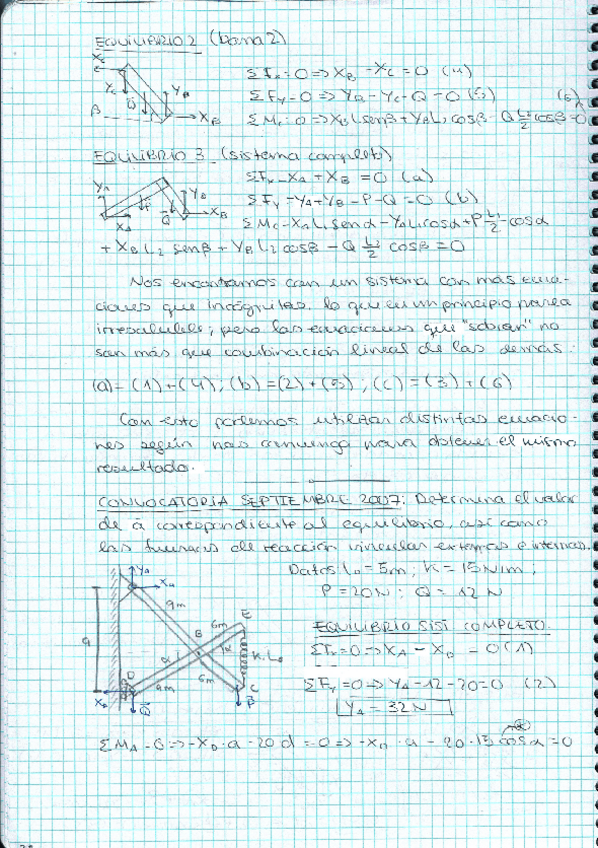 EQUILIBRIO 2 (barra 2)
Xc
Yc
Q
YB
β
XB
ΣFx=0 => XB - Xc = 0 (4)
ΣFy=0 => YB - Yc - Q = 0 (5)
(6)
ΣMc=0 => XB L2 senβ + YB L2 cosβ - Q L2/2 cosβ = 0
EQUILIBRIO 3 (sistema completo)
YA
XA
P
Q
YB
XB
ΣFx = XA + XB = 0 (a)
ΣFy = YA + YB - P - Q = 0 (b)
ΣMc = XA L1 senα - YA L1 cosα + P L1/2 cosα
+ XB L2 senβ + YB L2 cosβ - Q L2/2 cosβ = 0
Nos encontramos con un sistema con más ecua-
ciones que incógnitas, lo que en un principio parea
irresoluble, pero las ecuaciones que "sobran" no
son más que combinación lineal de las demás:
(a) = (1) + (4); (b) = (2) + (5); (c) = (3) + (6)
Con esto podemos utilizar distintas ecuacio-
nes según nos convenga para obtener el mismo
resultado.
CONVOCATORIA SEPTIEMBRE 2007: Determina el valor
de a correspondiente al equilibrio, así como
las fuerzas de reacción vincular externas e internas.
Datos: L0 = 5m; K = 15N/m;
P = 20N; Q = 12N
YA
XA
9m
a
6m
E
B
α
α
K, L0
D
9m
6m
C
XD
Q
P
EQUILIBRIO SIST COMPLETO
ΣFx=0 => XA - XD = 0 (1)
ΣFy=0 => YA - 12 - 20 = 0 (2)
YA = 32N
ΣMA = 0 => -XD·a - 20 d = 0 => -XD·a - 20·15 cosα = 0